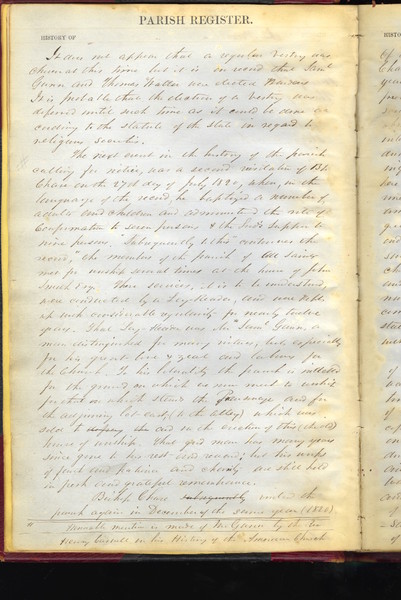 PARISH REGISTER.
HISTORY OF
It does not appear that a regular Vestry was
chosen at this time but it is on record that Saml
Gunn and Thomas Waller were elected Wardens
It is probable that the election of a Vestry was
deferred until such time as it could be done ac
cording to the statute of the state in regard to
religious societies.
The next event in the history of the parish
calling for notice, was a second visitation of Bp.
Chase on the 27th day of July 1820, when, in the
language of the record, he baptized a number of
adults and children and administered the rite of
Confirmation to seven persons & the Lord's supper to
nine persons. Subsequently to this "continues the
record," the members of the parish of All Saints
met for worship several times at the house of John
Smith Esqr. These services, it is to be understood,
were conducted by a Lay-Reader, and were kept
up with considerable regularity for nearly twelve
years. That Lay-Reader was Mr Saml. Gunn, a
man distinguished for many virtues, but especially
for his great love & zeal and labors for
the Church. To his liberality the parish is indebted
for the ground on which we now meet to worship
for that on which stands the Parsonage and for
the adjoining lot east (to the alley) which was
sold to and in the erection of this (the old)
house of worship. That good man has many years
since gone to his rest and reward; but his works
of faith and patience and charity are still held
in fresh and grateful remembrance.
Bishop Chase subsequently visited the
parish again in December of the same year (1820)
* Honorable mention is made of Mr Gunn by the Rev
Henry Caswall in his History of the American Church
HISTO